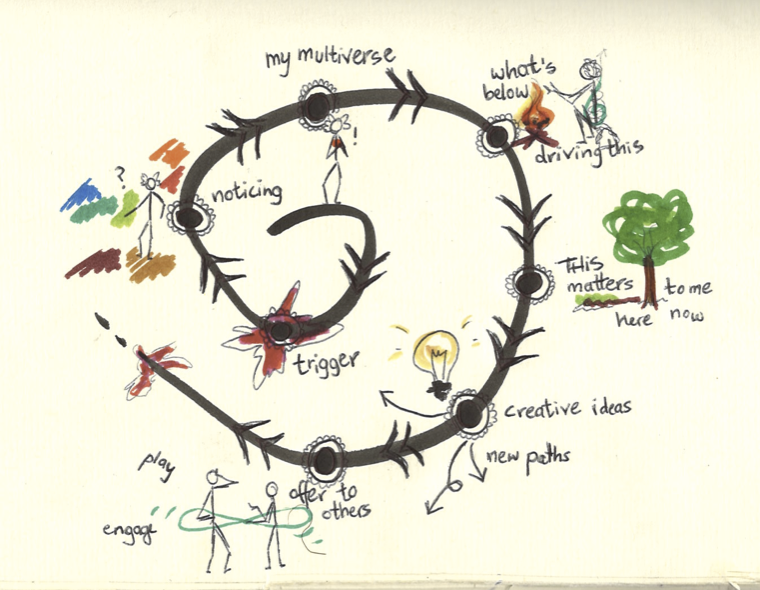 my multiverse
!
what's
below
driving this
?
noticing
This
matters
to me
here
now
trigger
creative ideas
new paths
offer to
others
play
engage